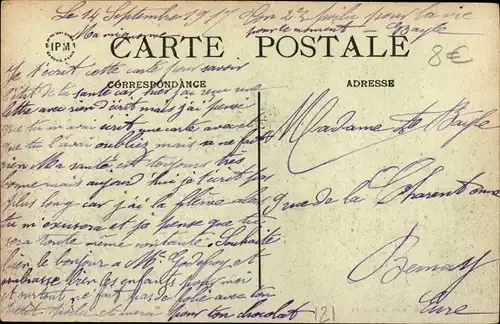 Le 14 Septembre 1917
Ma mignonne
Un petit poilu pour la vie
pour le moment — Bayle
8€
IPM
CARTE POSTALE
CORRESPONDANCE
ADRESSE
Je t'écrit cette carte pour savoir
de ta santé car hier j'ai reçu une
lettre avec rien d'écrit mais j'ai pensé
que tu m'avais écrit une carte avec et
que tu l'avais oubliez mais sa ne fait
rien Ma santé est toujours très
bonne mais aujourd'hui je t'écrit pas
plus long car j'ai la flème alors
tu m'excusera et je pense que tu
sera toute même contante Souhaite
bien le bonjour a Mme Godefroy et
embrasse bien les enfants pour moi
et surtout ne fait pas de folie avec ton
pour ton chocolat
Madame Bayle
Rue de la Charentonne
Bernay
Eure
121